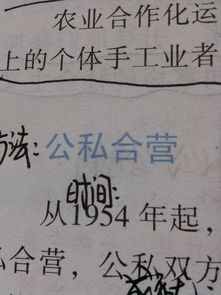 农业合作化运
上的个体手工业者
方法：公私合营
时间：
从1954年起，
公私合营，公私双方